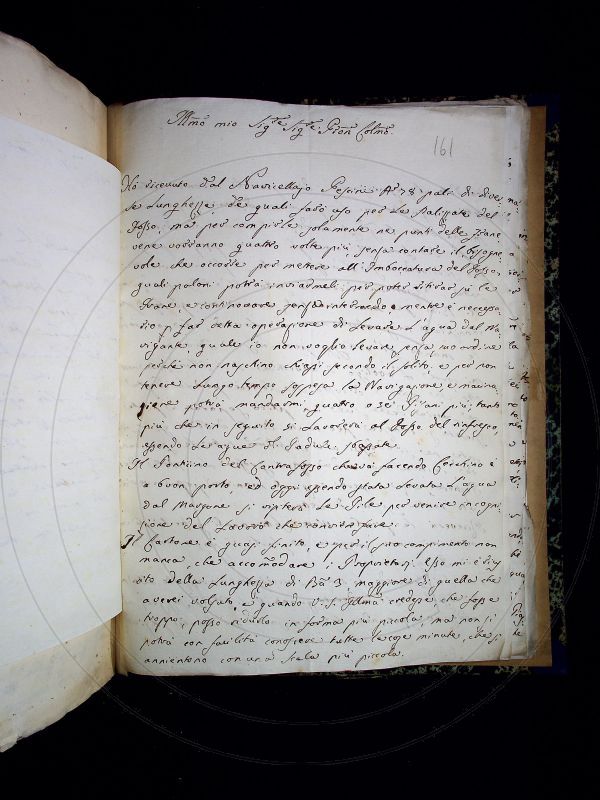 Illmo mio Sigre Sigre Pron Colmo
161
Hò ricevuto dal Navicellajo Pescini No 78 pali di diver
se Lunghezze, de quali farò uso per le Palizzate del
Fosso; ma per compirle solamente ne punti delle Frane,
vene vorranno quattro volte più, senza contare il bisogne
vole che occorre per mettere all'Imboccatura del Fosso,
quali paloni potrà inviarmeli per poter ritirar sù le
Frane, e continovare senza intermedo, mentre è necessa
rio p far detta operazione di Levare L'acqua dal Na
vigante, quale io non voglio levare senza suo ordine
perchè non naschino chiassi secondo il solito, e per non
tenere Lungo tempo sospesa la Navigazione, e macina
zione potrà mandarmi quattro o sei Pisani più, tanto
più che in seguito si Lavorerà al Fosso del rinfresco,
essendo Le acque di Padule sbassate.
Il Ponticino del Contrafosso che và facendo Cecchino è
a buon porto, ed oggi essendo stata levata L'acqua
dal Margine si vuoterà Le Pile per venire in cogni
zione del Lavoro che converrà fare.
Il Cartone è quasi finito, e per il suo compimento non
manca, che accomodare i Proprietarj. Esso mi è riu
scito della Lunghezza di Ba 3, maggiore di quella che
averei voluto, e quando V. S. Illma credesse, che fosse
troppo, posso ridurlo in forma più piccola, ma non si
potrà con facilità conoscere tutte le cose minute, che si
annientono con una scala più piccola.